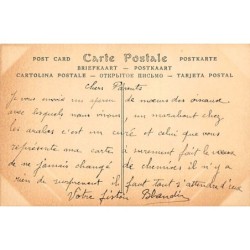 POST CARD Carte Postale POSTKARTE
BRIEFKAART — POSTKAART
CARTOLINA POSTALE — ОТКРЫТОЕ ПИСЬМО — TARJETA POSTAL
Chers Parents
Je vous envoie un aperçu de moeurs des oiseaux
avec lesquels nous vivons, un marabout chez
les arabes c'est un curé et celui que vous
représente ma carte à surement fait le voeux
de ne jamais changé de chemises il n'y a
rien de surprenant il faut tout s'attendre d'eux
Votre fiston Blandin